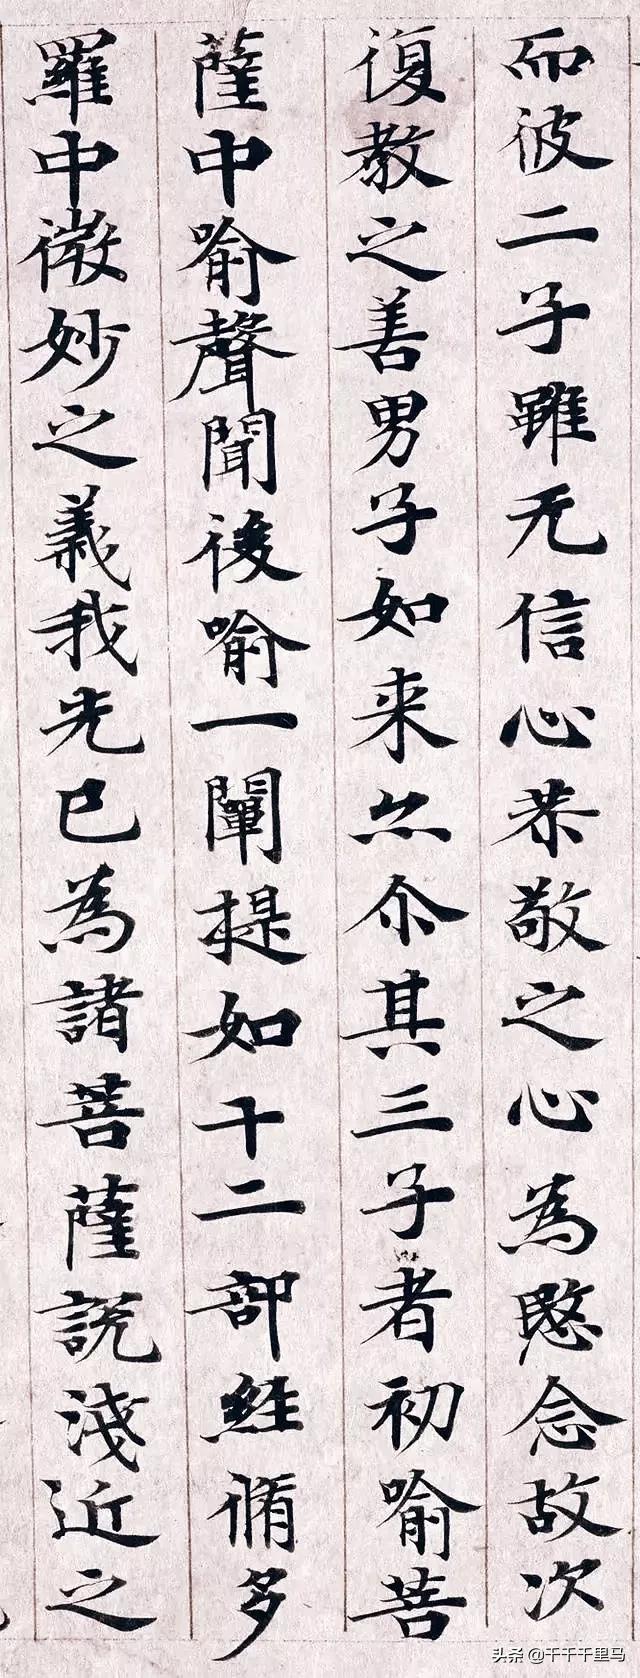 而彼二子雖无信心恭敬之心為愍念故次
復教之善男子如来亦尒其三子者初喻菩
薩中喻聲聞後喻一闡提如十二部經脩多
羅中微妙之義我先已為諸菩薩説淺近之
头条 @千千千里马